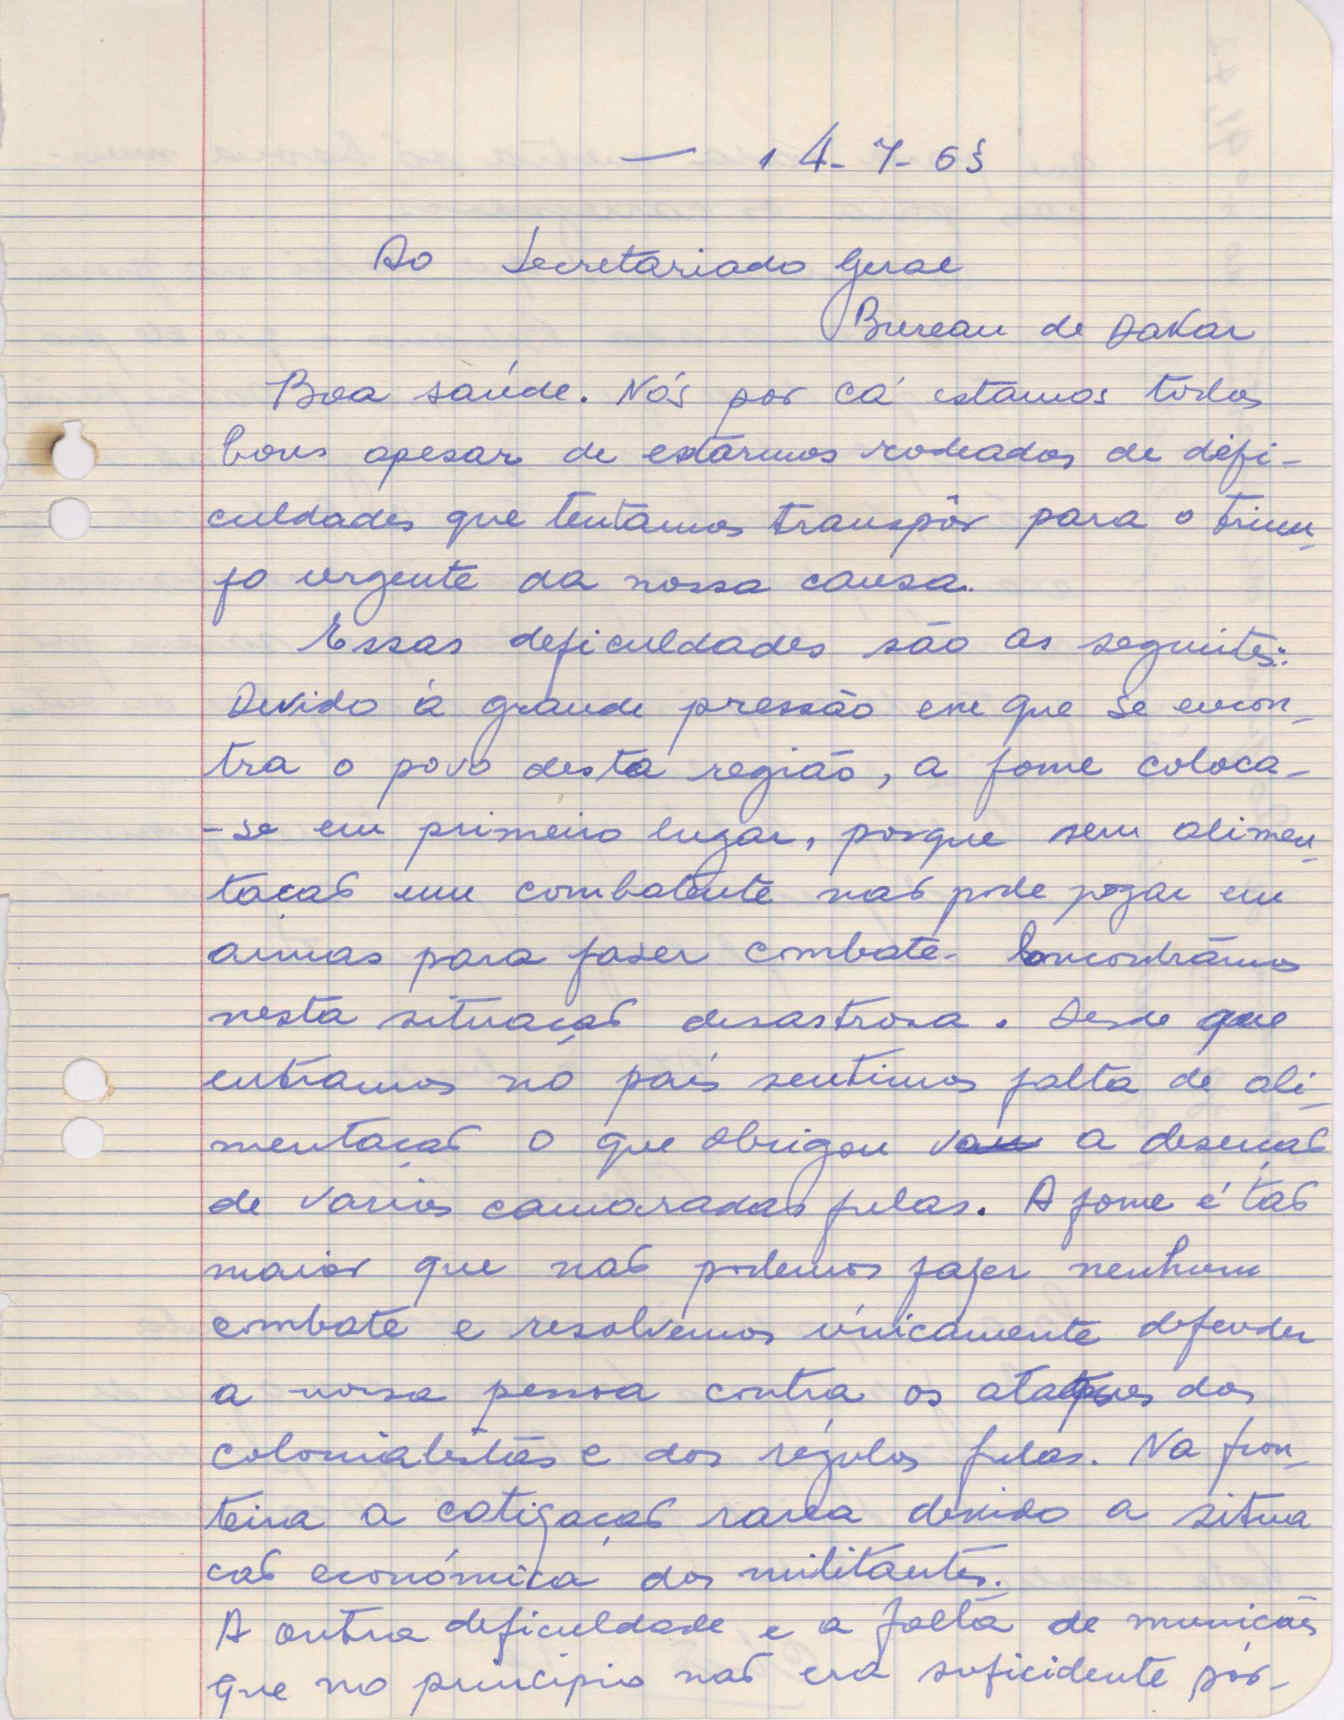 — 14-7-63
Ao Secretariado Geral
Bureau de Dakar
Boa saúde. Nós por cá estamos todos
bons apesar de estarmos rodeados de defi-
culdades que tentamos transpôr para o triun-
fo urgente da nossa causa.
Essas deficuldades são as seguintes:
Devido á grande pressão em que se encon-
tra o povo desta região, a fome coloca-
-se em primeiro lugar, porque sem alimen-
tação um combatente não pode pegar em
armas para fazer combate. Encontrámos
nesta situação desastrosa. Desde que
entramos no país sentimos falta de ali-
mentação o que obrigou a deserção
de varios camaradas fulas. A fome é tão
maior que não podemos fazer nenhum
combate e resolvemos únicamente defender
a nossa pessoa contra os ataques dos
colonialistas e dos régulos fulas. Na fron-
teira a cotização rarea devido a situa
ção económica dos militantes.
A outra deficuldade e a falta de munições
que no principio não era suficidente pôr-